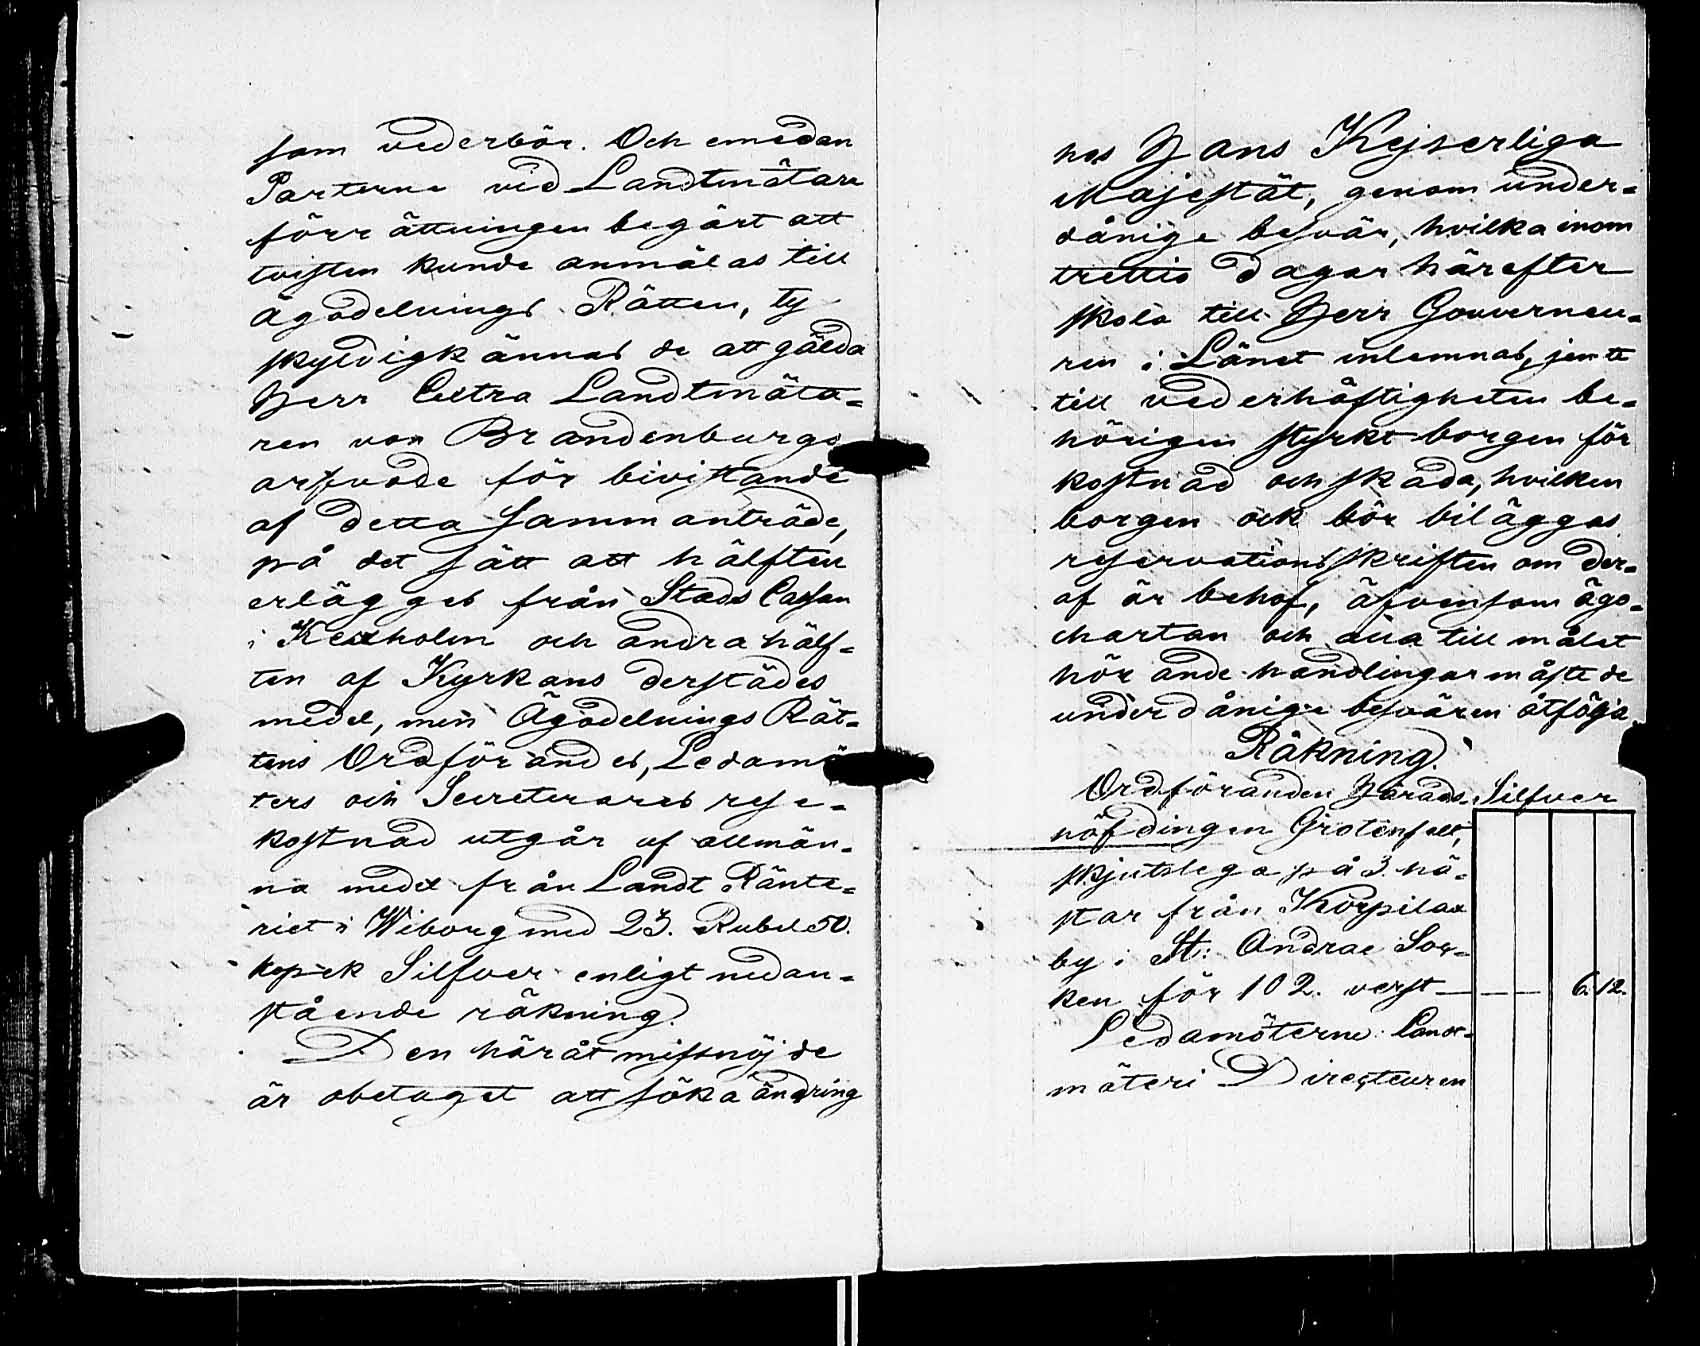 som vederbör. Och emedan
Parterne vid Landtmätare
förrättningen begärt att
tvisten kunde anmälas till
Ägodelnings Rätten, ty
skyldigkännas de att gälda
Herr Extra Landtmäta=
ren von Brandenburgs
arfvode för bivistande
af detta Sammanträde,
på det sätt att hälften
erlägges från Stads Cassan
i Kexholm och andra hälf=
ten af Kyrkans derstädes
medel, men Ägodelnings Rät=
tens Ordförandes, Ledamö
ters och Secreterares rese=
kostnad utgår af allmän=
na medel från Landt Ränte=
riet i Wiborg med 23. Rubel 50.
kopek Silfver enligt nedan=
stående räkning.
Den häråt missnöjde
är obetaget att söka ändring
hos Hans Kejserliga
Majestät, genom under=
dånige besvär, hvilka inom
trettio dagar härefter
skola till Herr Gouverneu=
ren i Länet inlemnas, jemte
till vederhäftigheten be=
hörigen styrkt borgen för
kostnad och skada, hvilken
borgen ock bör biläggas
reservationsskriften om der=
af är behof, äfvensom ägo=
chartan och alla till målet
hörande handlingar måste de
underdånige besvären åtfölja
Räkning.
Ordföranden Härads= Silfver
höfdingen Grotenfelt,
skjutslega på 3. hä=
star från Korpilax
by i St: Andrae Soc=
ken för 102. verst — 6. 12.
Ledamöterne: Landt=
mäteri Directeuren